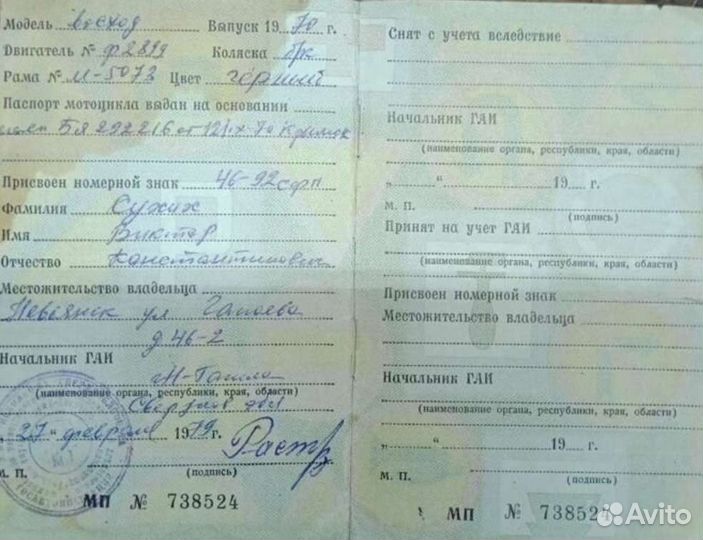 Модель восход Выпуск 1970 г.
Двигатель № Ф2819 Коляска б/к
Рама № М-5073 Цвет черный
Паспорт мотоцикла выдан на основании
БЯ 292216 от 12/IX-70
Присвоен номерной знак 46-92 СФП
Фамилия Сухих
Имя Виктор
Отчество Константинович
Местожительство владельца
Невьянск ул Чапаева
д 46-2
Начальник ГАИ
Н-Тагила
(наименование органа, республики, края, области)
Свердлов обл
„27“ февраля 1979 г.
М. П. (подпись)
МП № 738524
Снят с учета вследствие
Начальник ГАИ
(наименование органа, республики, края, области)
„ “ 19 г.
М. П. (подпись)
Принят на учет ГАИ
(наименование органа, республики, края, области)
Присвоен номерной знак
Местожительство владельца
Начальник ГАИ
(наименование органа, республики, края, области)
„ “ 19 г.
М. П. (подпись)
МП № 738524
Avito